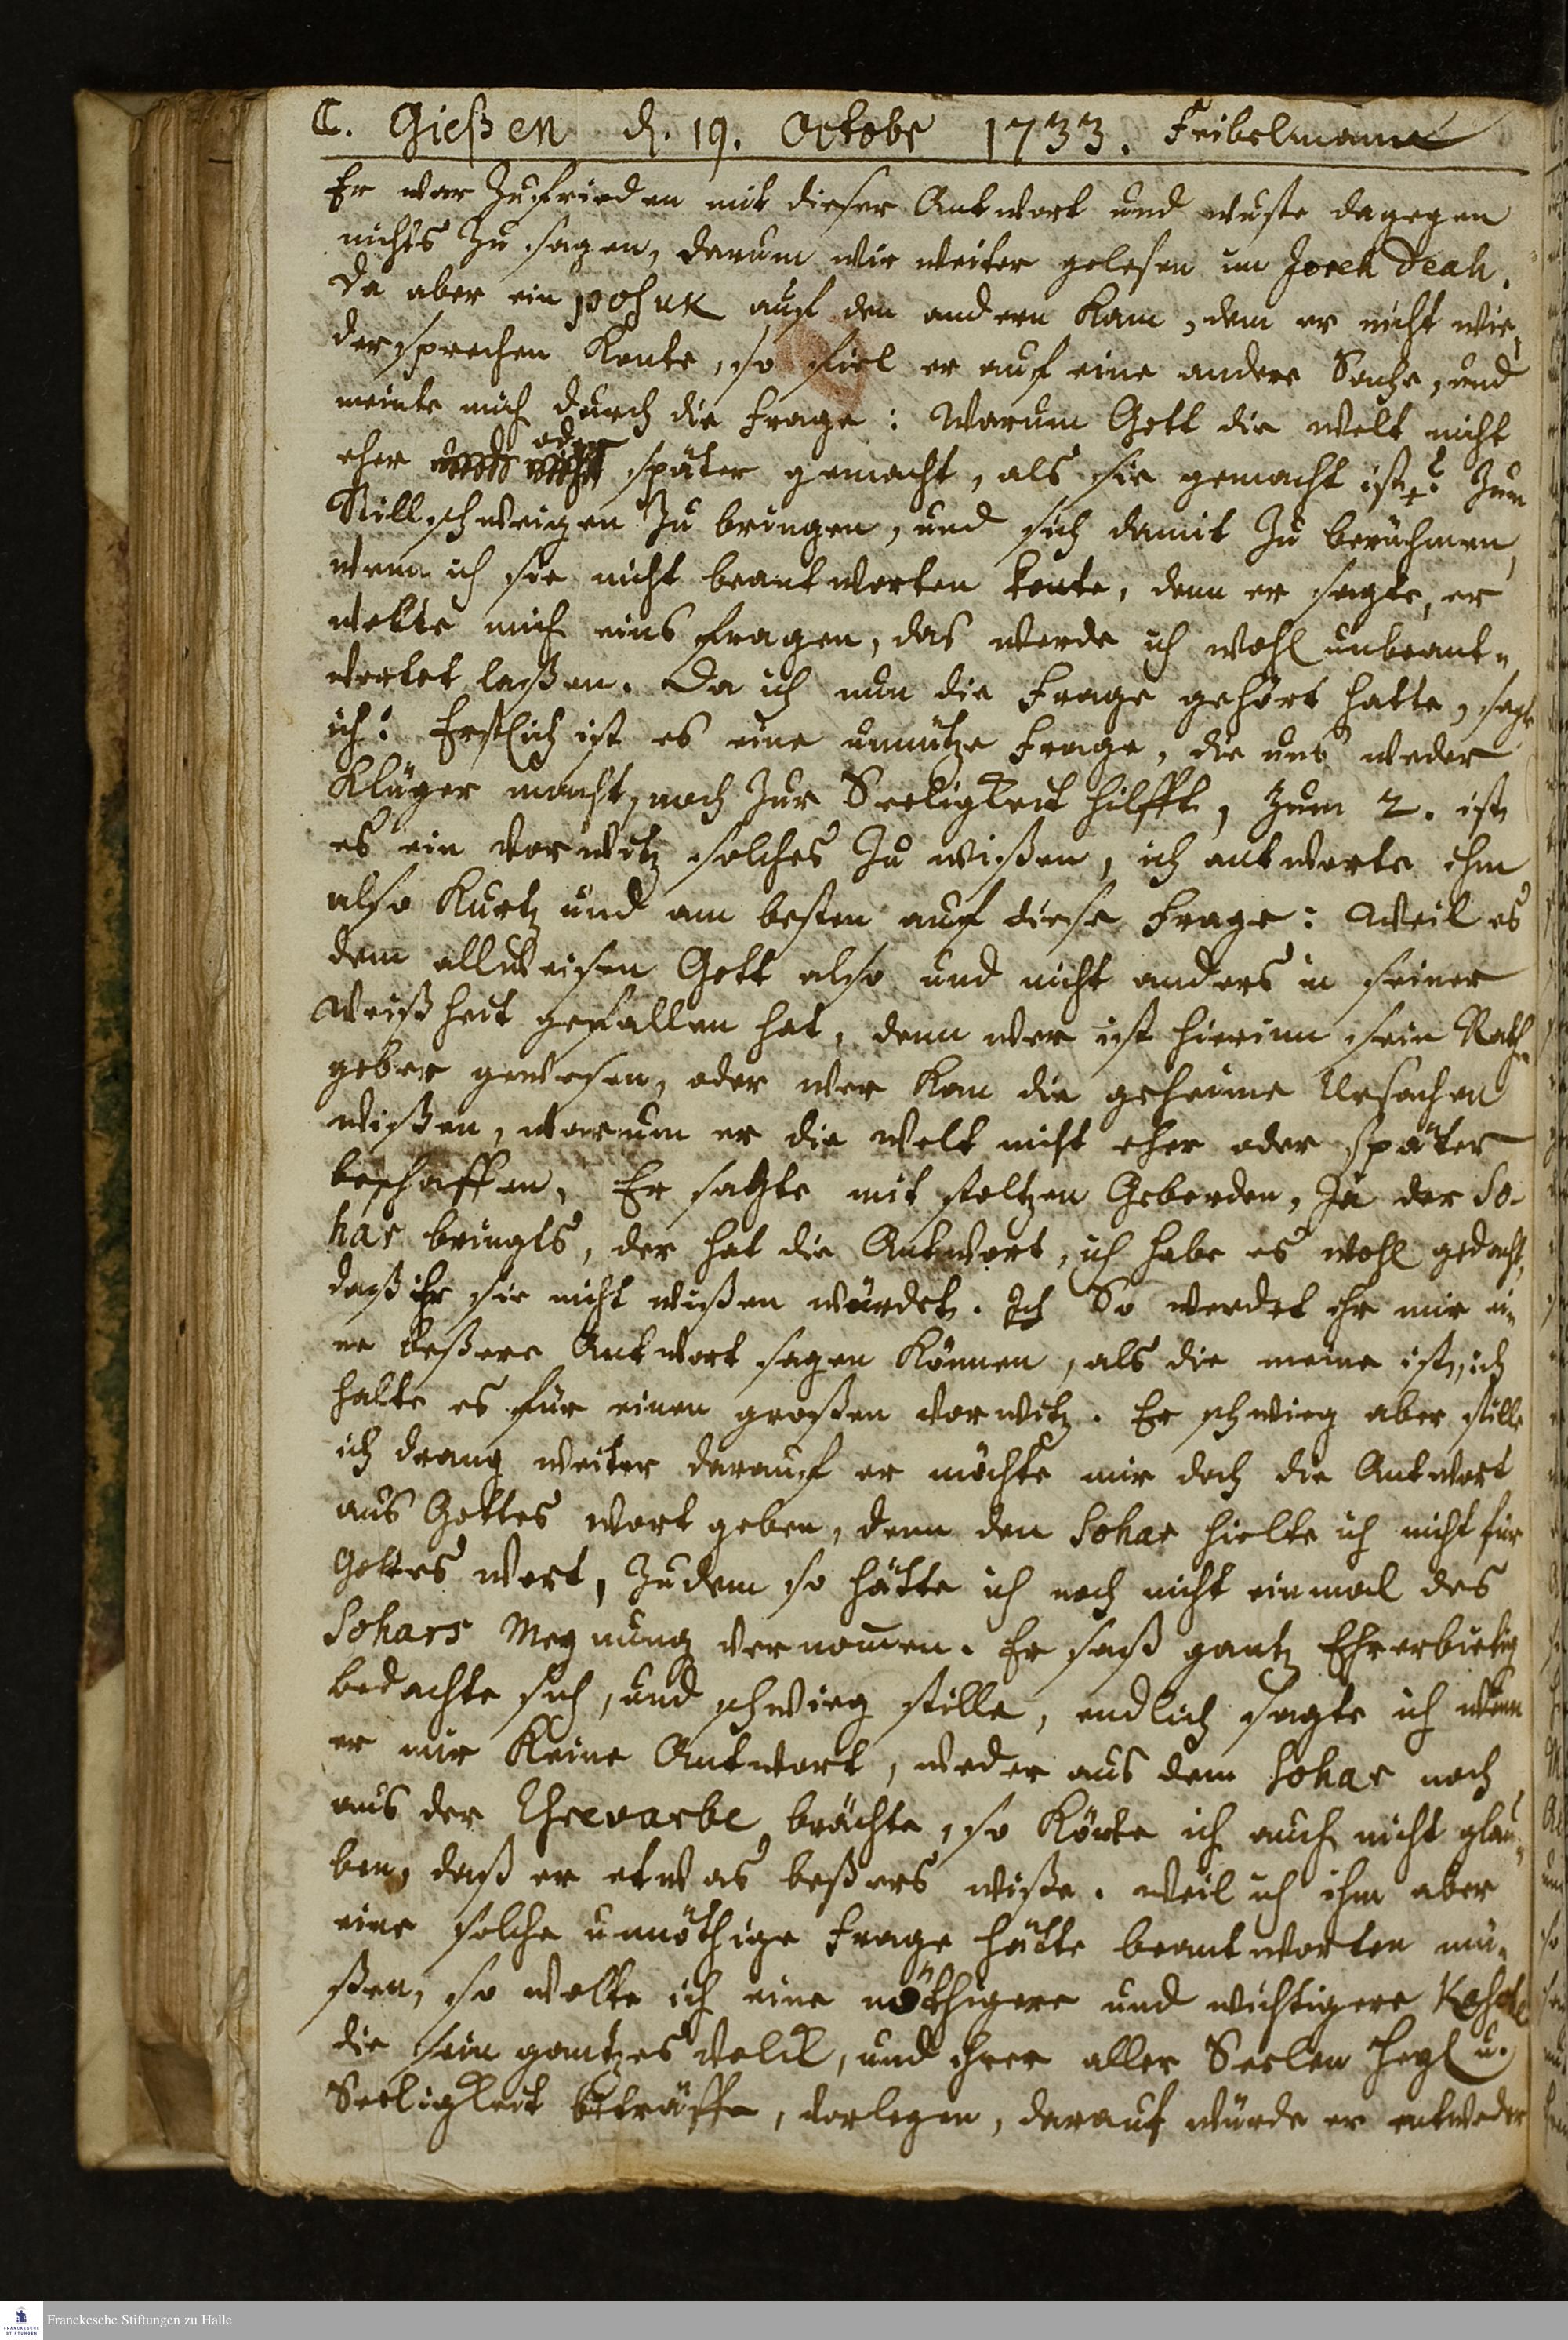 C. Gießen d. 19. Octobr 1733. Feibelmann
Er war zufrieden mit dieser Antwort und wuste dagegen
nichts zu sagen, darum wir weiter gelesen im Joreh Deah.
Da aber ein posuk auf den andern kam, dem er nicht wie,
dersprechen konte, so fiel er auf eine andere Sache, und
meinte mich durch die Frage: Warum Gott die Welt nicht
eher oder später gemacht, als sie gemacht ist? zum
Stillschweigen zu bringen, und sich damit zu berühmen,
wenn ich sie nicht beantworten konte, denn er sagte, er
wolte mich eins fragen, das werde ich wohl unbeant-
wortet laßen. Da ich nun die Frage gehört hatte, sagte
ich: Erstlich ist es eine unnütze Frage, die uns weder
klüger macht, noch zur Seeligkeit hilfft, zum 2. ist
es ein Vorwitz solches zu wißen, ich antworte ihm
also kurtz und am besten auf diese Frage: Weil es
dem allweisen Gott also und nicht anders in seiner
Weißheit gefallen hat, denn wer ist hierinn sein Rath-
geber gewesen, oder wer kan die geheime Ursachen
wißen, warum er die Welt nicht eher oder später
beschaffen. Er sagte mit stoltzen Geberden, Ja der So-
har bringts, der hat die Antwort, ich habe es wohl gedacht,
daß ihr sie nicht wißen würdet. Ich So werdet ihr mir ei-
ne beßere Antwort sagen können, als die meine ist, ich
halte es für einen großen Vorwitz. Er schwieg aber stille
ich drang weiter darauf er möchte mir doch die Antwort
aus Gottes Wort geben, denn den Sohar hielte ich nicht für
Gottes Wort, zudem so hätte ich noch nicht einmal des
Sohars Meynung vernommen. Er saß gantz Ehrerbietig
bedachte sich, und schwieg stille, endlich sagte ich wenn
er mir keine Antwort, weder aus dem Sohar noch
aus der Esrevarbe brächte, so könte ich auch nicht glau-
ben, daß er etwas beßers wiße. Weil ich ihm aber
eine solche unnöthige Frage hätte beantworten mü-
ßen, so wolte ich eine nöthigere und wichtigere
die sein gantzes Volck, und ihrer aller Seelen Heyl u.
Seeligkeit beträffe, vorlegen, darauf würde er entweder
Franckesche Stiftungen zu Halle